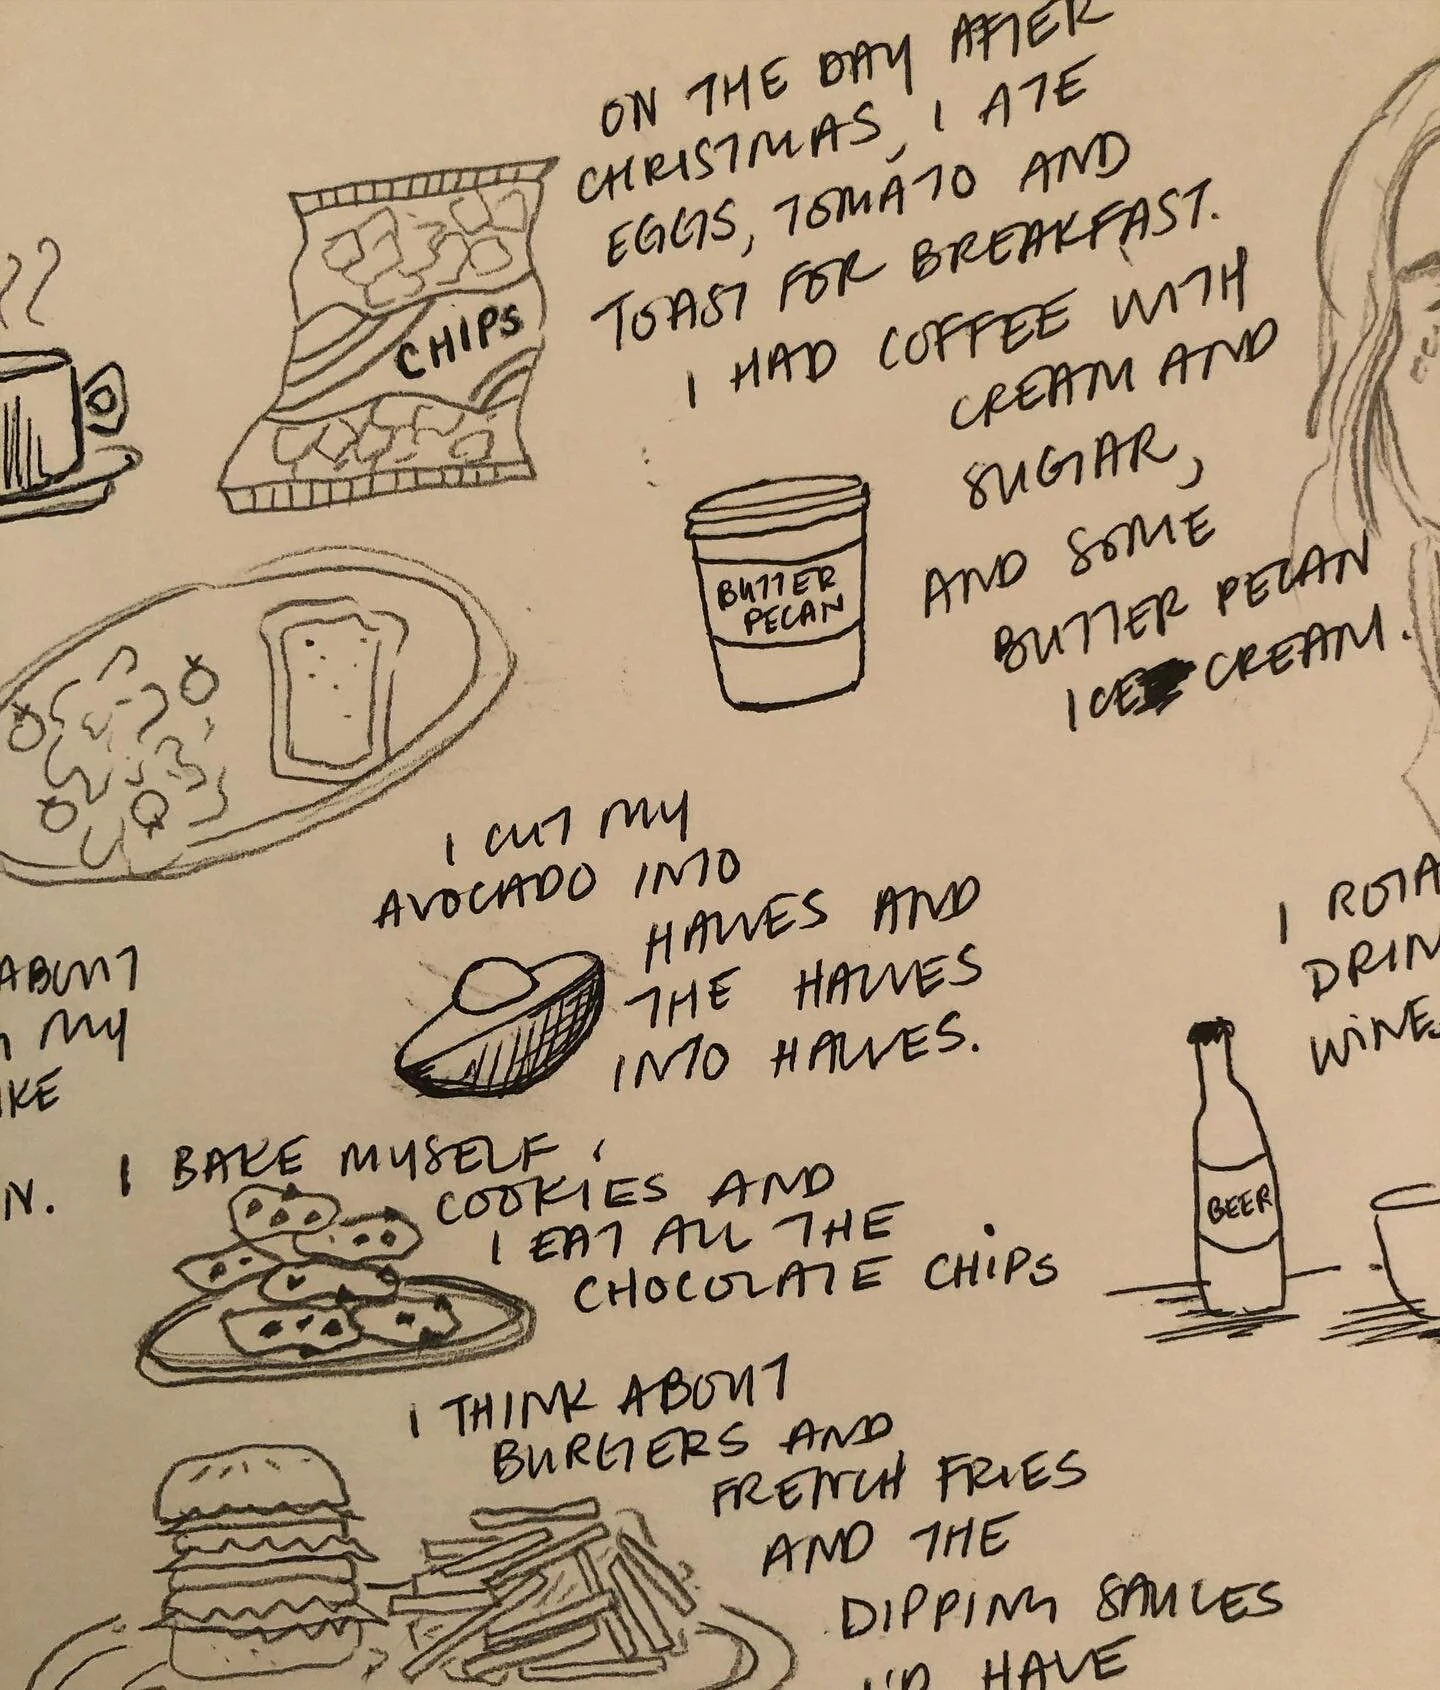 ON THE DAY AFTER
CHRISTMAS, I ATE
EGGS, TOMATO AND
TOAST FOR BREAKFAST.
I HAD COFFEE WITH
CREAM AND
SUGAR,
AND SOME
BUTTER PECAN
ICE CREAM.
CHIPS
BUTTER
PECAN
I CUT MY
AVOCADO INTO
HALVES AND
THE HALVES
INTO HALVES.
ABOUT
MY
N.
I ROTA
DRIN
WINE.
BEER
I BAKE MYSELF
COOKIES AND
I EAT ALL THE
CHOCOLATE CHIPS
I THINK ABOUT
BURGERS AND
FRENCH FRIES
AND THE
DIPPING SAUCES
I'D HAVE